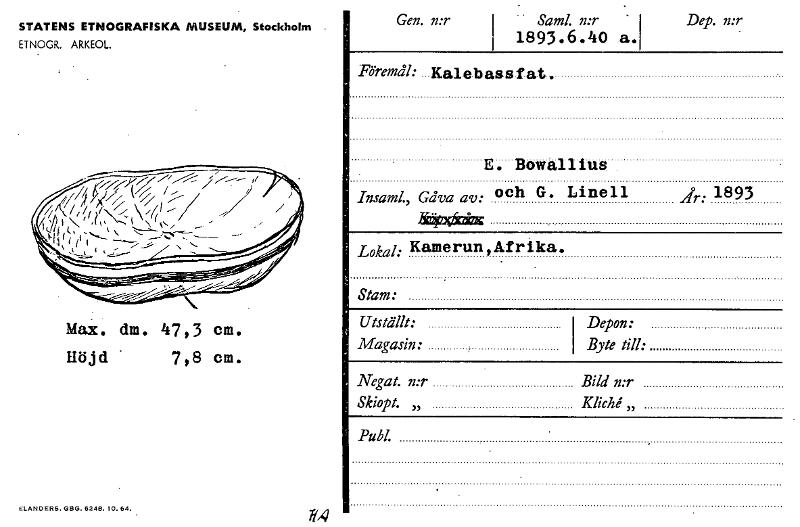 STATENS ETNOGRAFISKA MUSEUM, Stockholm
ETNOGR. ARKEOL.
Max. dm. 47,3 cm.
Höjd 7,8 cm.
ELANDERS. GBG. 6248. 10. 64.
HA
Gen. n:r Saml. n:r Dep. n:r
1893.6.40 a.
Föremål: Kalebassfat.
E. Bowallius
Insaml., Gåva av: och G. Linell År: 1893
Lokal: Kamerun,Afrika.
Stam:
Utställt: Depon:
Magasin: Byte till:
Negat. n:r Bild n:r
Skiopt. „ Kliché „
Publ.